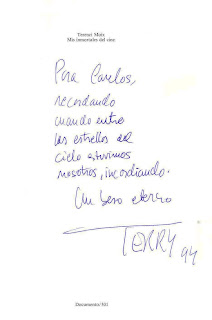 Terenci Moix
Mis inmortales del cine
Para Carlos,
recordando
cuando entre
las estrellas del
cielo estuvimos
nosotros, incordiando.
Un beso eterno
TERRY 94
Documento/301